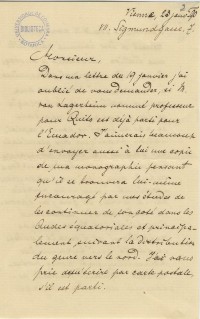 Vienne, 23 janv.
10. Sigmundsgasse, 7.
Monsieur,
Dans ma lettre du 19 janvier, j'ai
oublié de vous demander, si M.
van Lagerheim nommé professeur
pour Quito est déjà parti pour
l'Ecuador. J'aimerais beaucoup
d'envoyer aussi à lui une copie
de ma monographie pensant
qu'il se trouvera lui-même
encouragé par mes études de
les continuer de son côté dans les
Andes équatoriales et principa-
lement suivant la distribution
du genre vers le nord. Je vous
prie de m'écrire par carte postale,
s'il est parti.